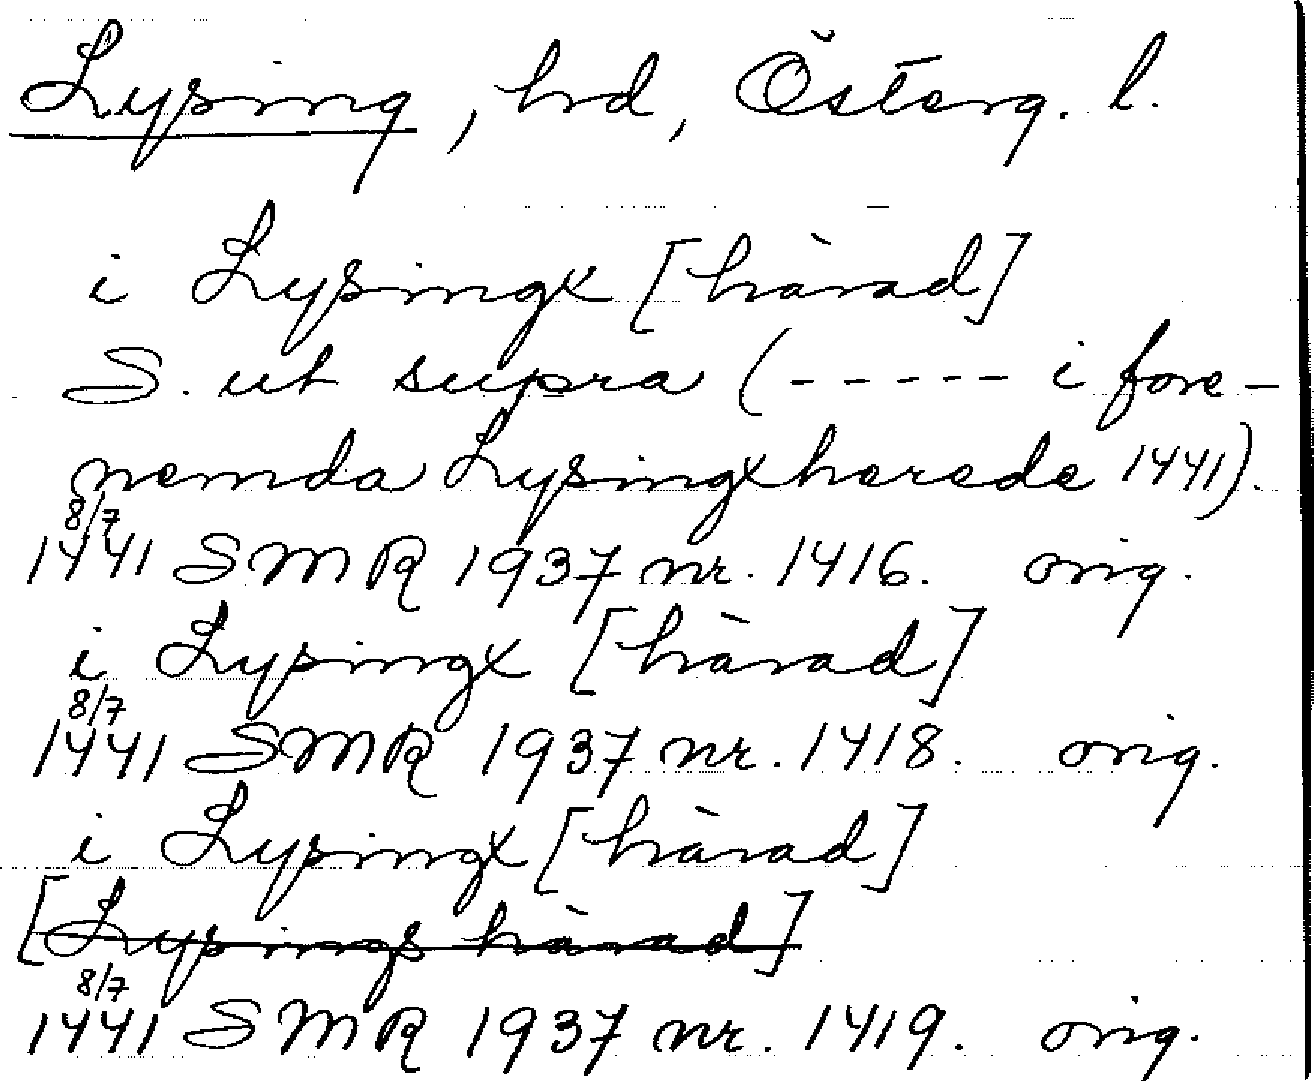 Lysing, hrd, Österg. l.
i Lysingx [härad]
S. ut supra (----- i fore-
nemda Lysingxherede 1441).
8/7
1441 SMR 1937 nr. 1416. orig.
i Lysingx [härad]
8/7
1441 SMR 1937 nr. 1418. orig.
i Lysingx [härad]
[Lysings härad]
8/7
1441 SMR 1937 nr. 1419. orig.